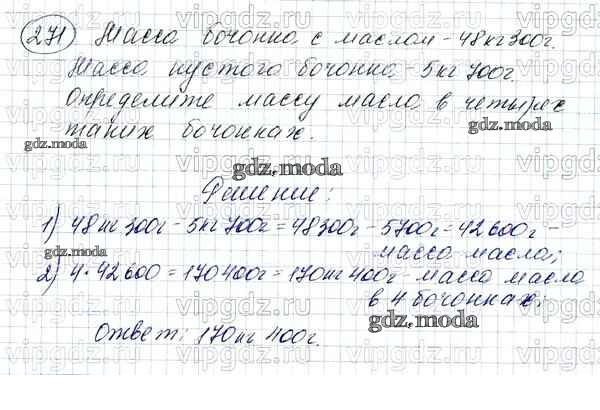 271 Масса бочонка с маслом - 48кг300г.
Масса пустого бочонка - 5кг 700г.
Определите массу масла в четырех
таких бочонках.
gdz.moda
gdz.moda
gdz.moda
Решение:
1) 48кг 300г - 5кг 700г = 48300г - 5700г = 42600г -
масса масла;
2) 4 · 42600 = 170400г = 170кг 400г - масса масла
в 4 бочонках;
gdz.moda
Ответ: 170кг 400г.
vipgdz.ru